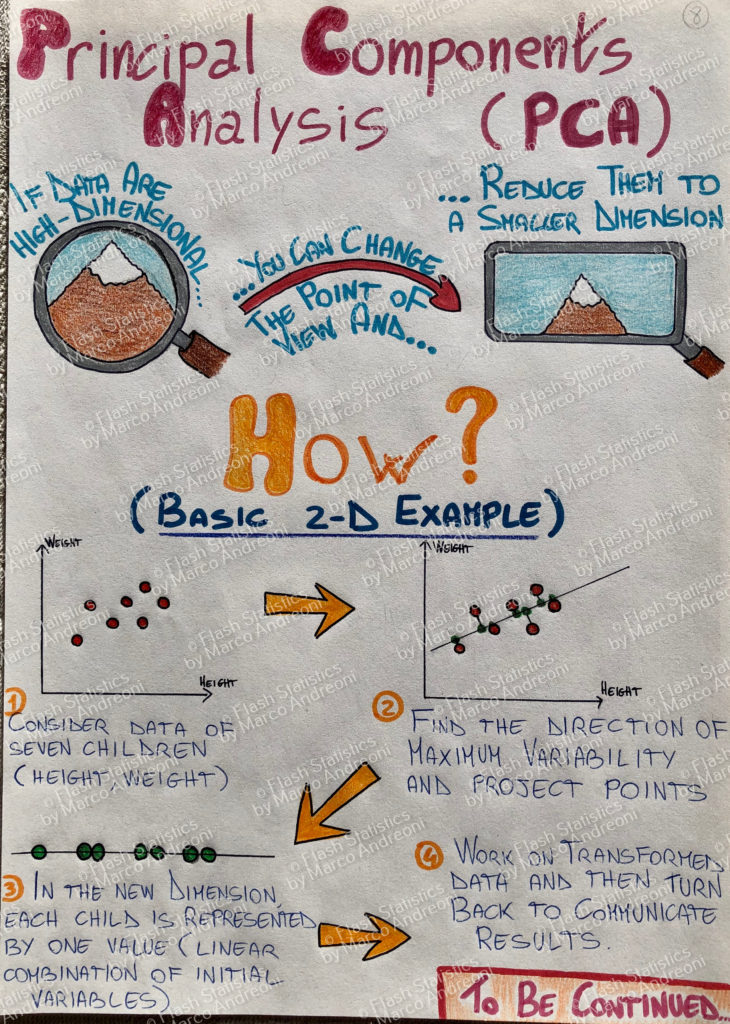 8
Principal Components
Analysis (PCA)
IF DATA ARE
HIGH-DIMENSIONAL...
...YOU CAN CHANGE
THE POINT OF
VIEW AND...
... REDUCE THEM TO
A SMALLER DIMENSION
HOW?
(BASIC 2-D EXAMPLE)
WEIGHT
HEIGHT
WEIGHT
HEIGHT
1
CONSIDER DATA OF
SEVEN CHILDREN
(HEIGHT, WEIGHT)
2
FIND THE DIRECTION OF
MAXIMUM VARIABILITY
AND PROJECT POINTS
3 IN THE NEW DIMENSION,
EACH CHILD IS REPRESENTED
BY ONE VALUE (LINEAR
COMBINATION OF INITIAL
VARIABLES)
4 WORK ON TRANSFORMED
DATA AND THEN TURN
BACK TO COMMUNICATE
RESULTS.
TO BE CONTINUED...
© Flash Statistics
by Marco Andreoni